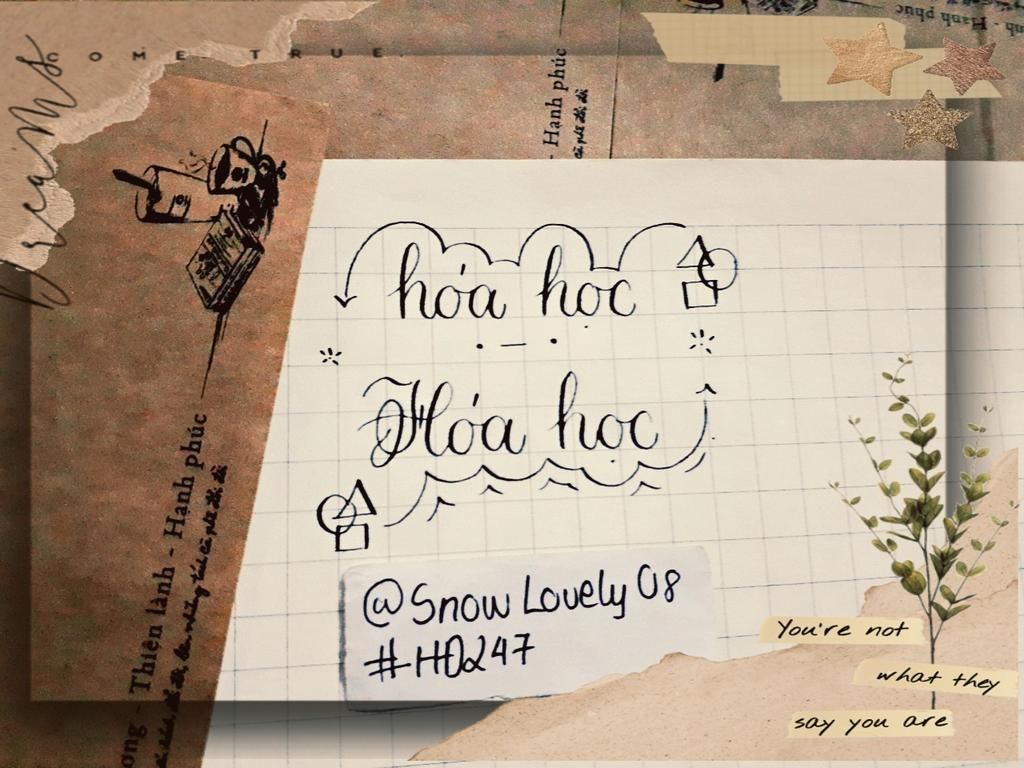 Dreams
COME TRUE.
- Hạnh phúc
- Hạnh phúc
hóa học
Hóa học
ong - Thiện lành - Hạnh phúc
@Snow Lovely 08
#HD247
You're not
what they
say you are